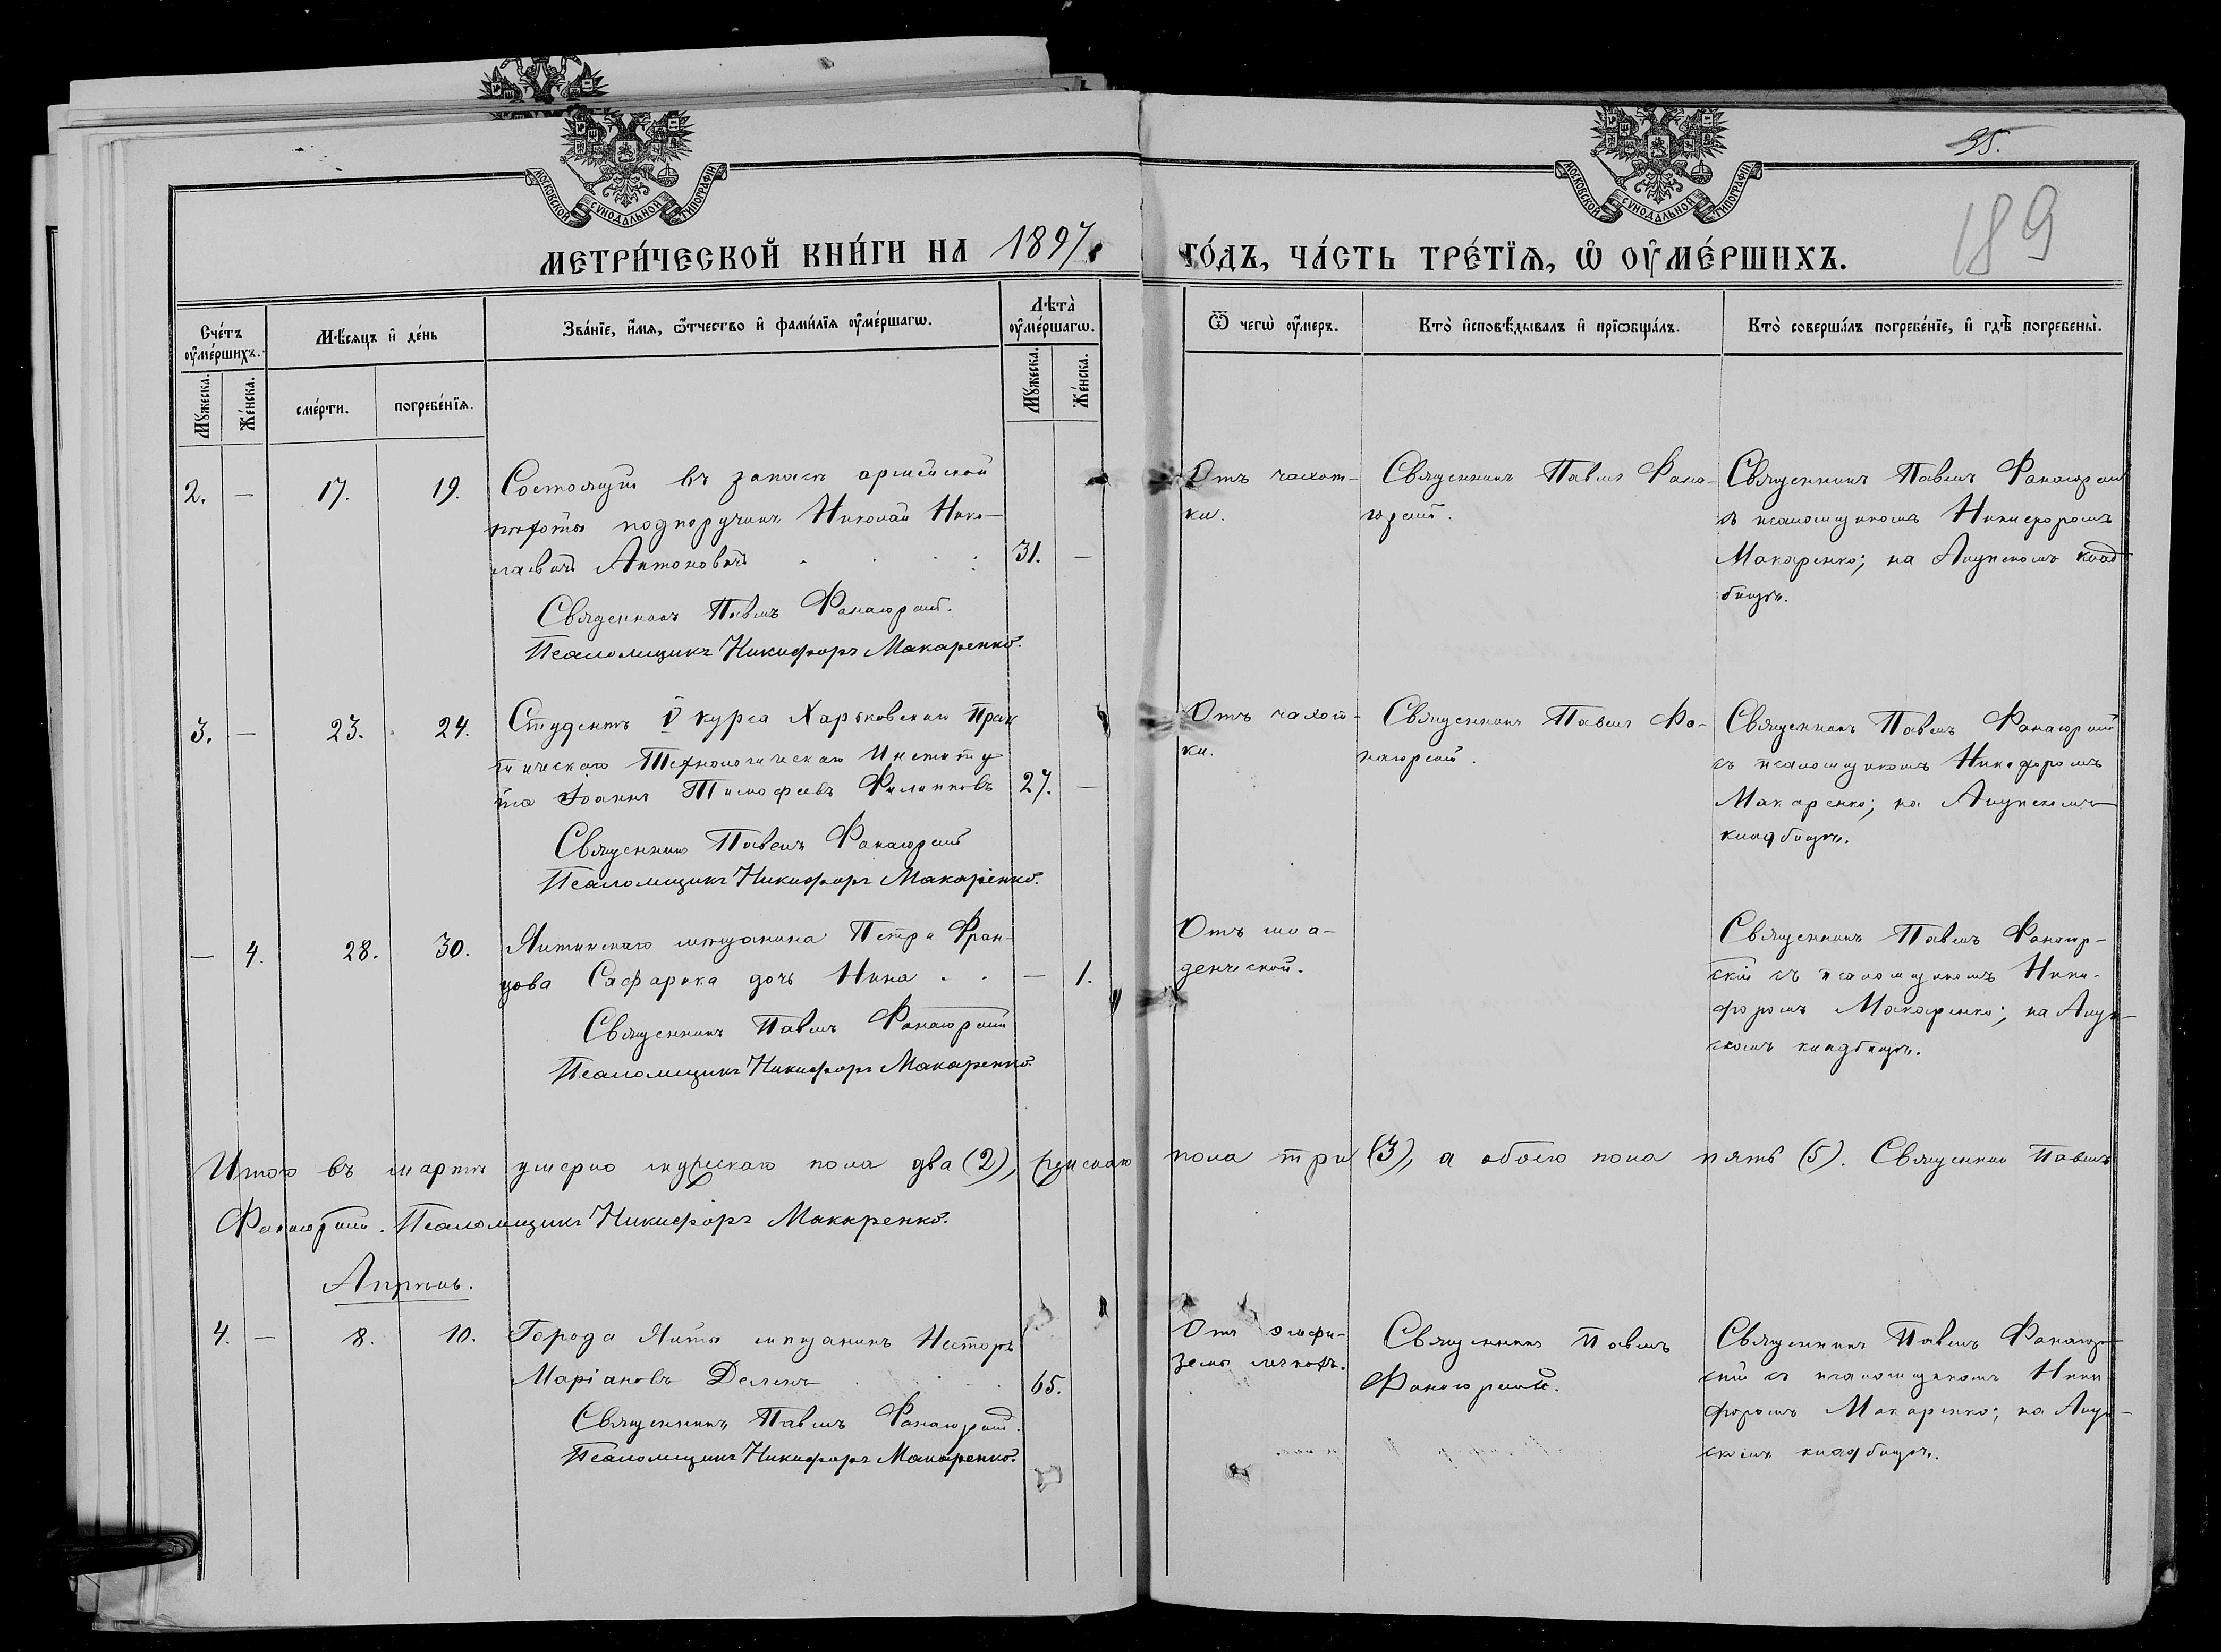 МОСКОВСКОЙ СѴНОДАЛЬНОЙ ТИПОГРАФІИ
МОСКОВСКОЙ СѴНОДАЛЬНОЙ ТИПОГРАФІИ
35.
189
МЕТРИ́ЧЕСКОЙ КНИ́ГИ НА 1897
ГО́ДЪ, ЧА́СТЬ ТРЕ́ТЇѦ, Ѡ҆ ОУ҆МЕ́РШИХЪ.
Сче́тъ оу҆ме́ршихъ.
Мꙋ́жеска.
Же́нска.
Мѣ́сяцъ и҆ де́нь
сме́рти.
погребе́нїѧ.
Зва́нїе, и҆́мѧ, ѻ҆́тчество и҆ фами́лїѧ оу҆ме́ршагѡ.
Лѣта̀ оу҆ме́ршагѡ.
Мꙋ́жеска.
Же́нска.
Ѿ чегѡ̀ оу҆́меръ.
Кто̀ и҆сповѣ́дывалъ и҆ прїѡбща́лъ.
Кто̀ соверша́лъ погребе́нїе, и҆ гдѣ̀ погребены̀.
2. — 17. 19.
Состоящій въ запасѣ армейской
пѣхоты подпоручикъ Николай Нико-
лаевичъ Антоновичъ
31. —
Священникъ Павелъ Фанагорскій.
Псаломщикъ Никифоръ Макаренко.
Отъ чахот-
ки.
Священникъ Павелъ Фана-
горскій.
Священникъ Павелъ Фанагорскій
съ псаломщикомъ Никифоромъ
Макаренко; на Аутскомъ клад-
бищѣ.
3. — 23. 24.
Студентъ V курса Харьковскаго Прак
тическаго Технологическаго Институ
та Іоаннъ Тимофеевъ Филипповъ
27. —
Священникъ Павелъ Фанагорскій
Псаломщикъ Никифоръ Макаренко.
Отъ чахот-
ки.
Священникъ Павелъ Фа-
нагорскій.
Священникъ Павелъ Фанагорскій
съ псаломщикомъ Никифоромъ
Макаренко; на Аутскомъ
кладбищѣ.
— 4. 28. 30.
Ялтинскаго мѣщанина Петра Фран-
цова Сафарика дочь Нина . .
— 1.
Священникъ Павелъ Фанагорскій
Псаломщикъ Никифоръ Макаренко
Отъ мла-
денческой.
Священникъ Павелъ Фанагор-
скій съ псаломщикомъ Ники-
форомъ Макаренко; на Аут-
скомъ кладбищѣ.
Итого въ мартѣ умерло мужескаго пола два (2), женскаго пола три (3), а обоего пола пять (5). Священникъ Павелъ
Фанагорскій. Псаломщикъ Никифоръ Макаренко.
Апрѣль.
4. — 8. 10.
Города Ялты мѣщанинъ Несторъ
Маріановъ
65.
Священникъ Павелъ Фанагорскій.
Псаломщикъ Никифоръ Макаренко.
Отъ эмфи-
земы легкихъ.
Священникъ Павелъ
Фанагорскій.
Священникъ Павелъ Фанагор-
скій съ псаломщикомъ Ники
форомъ Макаренко; на Аут-
скомъ кладбищѣ.